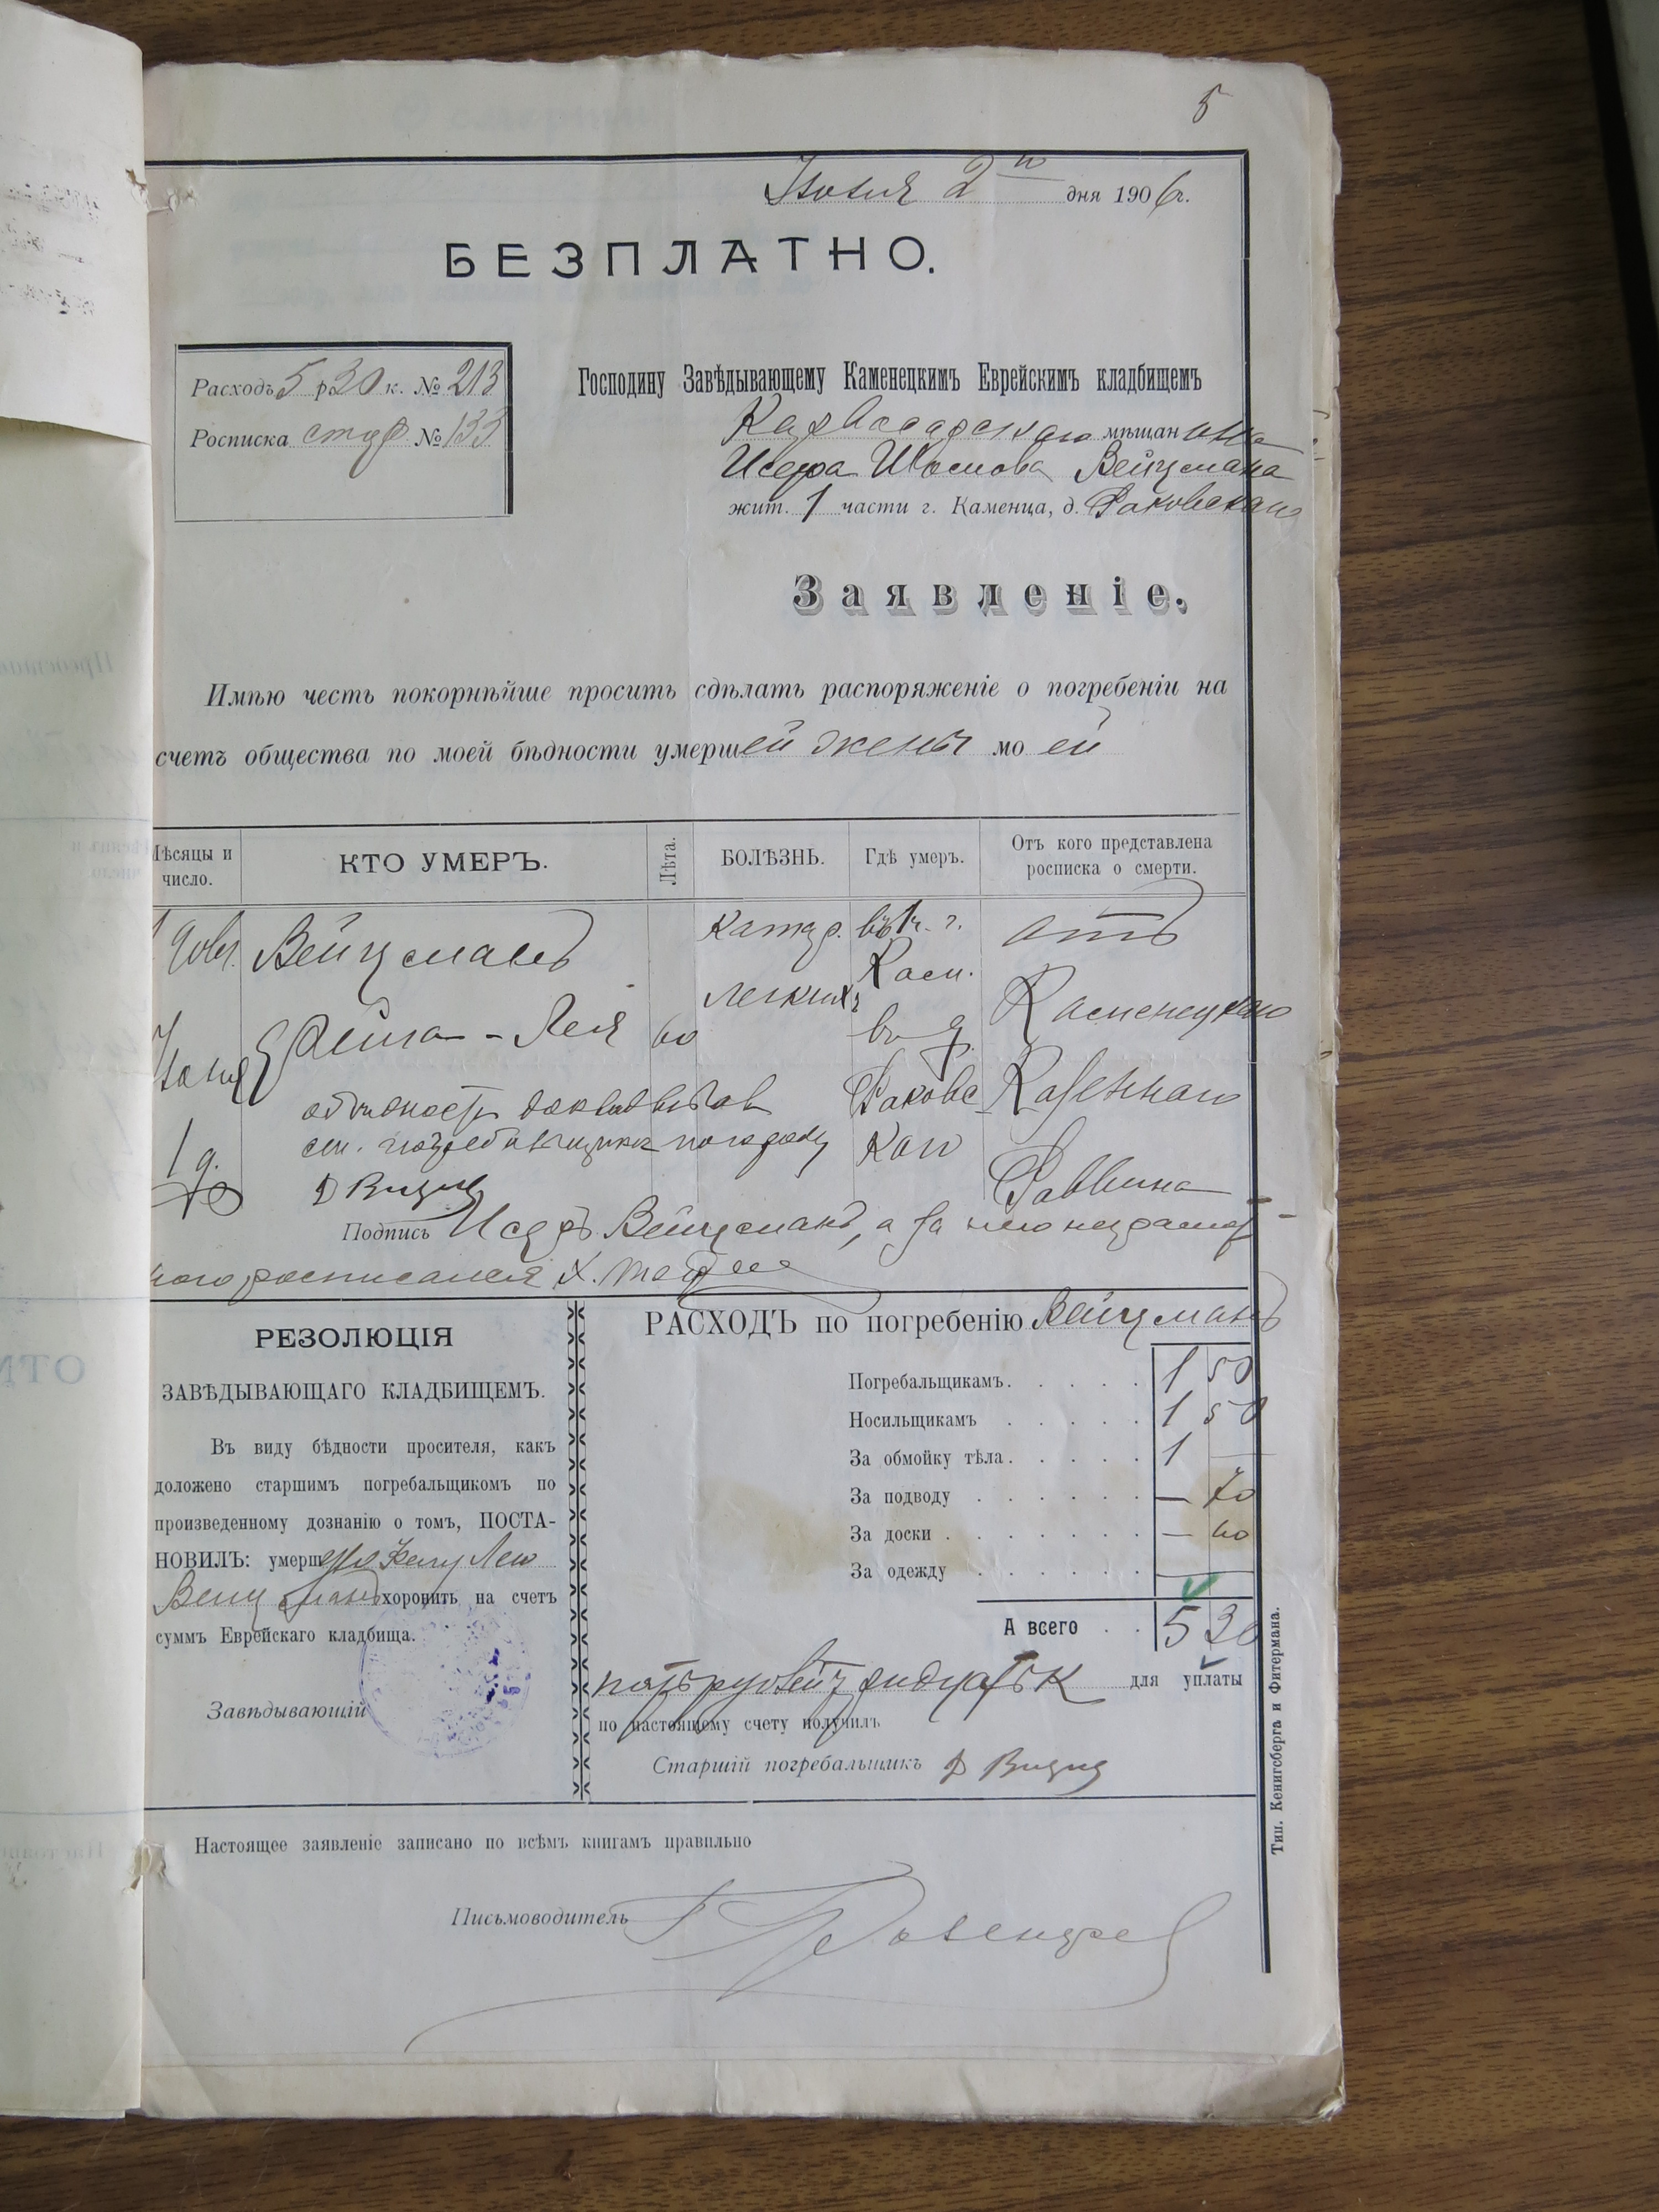 5
Июня 2го дня 1906 г.
БЕЗПЛАТНО.
Расходъ 5 р 30 к. № 213
Росписка № 133
Господину Завѣдывающему Каменецкимъ Еврейскимъ кладбищемъ
мѣщанина
Вейцмана
жит. 1 части г. Каменца, д. Раковскаго
Заявленіе.
Имѣю честь покорнѣйше просить сдѣлать распоряженіе о погребеніи на
счетъ общества по моей бѣдности умершей жены моей
Мѣсяцы и число.
КТО УМЕРЪ.
Лѣта.
БОЛѢЗНЬ.
Гдѣ умеръ.
Отъ кого представлена росписка о смерти.
Июня 1 д.
Вейцманъ
Лея
60
катар. легкихъ
въ 1 ч. г. Кам. въ д. Раковскаго
отъ Каменецкаго Казеннаго Раввина
о бѣдности
ст. погребальщикъ
Подпись Вейцманъ, а за него неграмот
наго росписался Х.
РЕЗОЛЮЦІЯ
ЗАВѢДЫВАЮЩАГО КЛАДБИЩЕМЪ.
Въ виду бѣдности просителя, какъ
доложено старшимъ погребальщикомъ по
произведенному дознанію о томъ, ПОСТА-
НОВИЛЪ: умершую Лею
Вейцманъ хоронить на счетъ
суммъ Еврейскаго кладбища.
Завѣдывающій
РАСХОДЪ по погребенію Вейцманъ
Погребальщикамъ. . . . . 1 50
Носильщикамъ . . . . . 1 50
За обмойку тѣла. . . . . 1 —
За подводу . . . . . . — 70
За доски . . . . . . . — 60
За одежду . . . . . .
А всего . . 5 30
пять рублей тридцать к для уплаты
по настоящему счету получилъ
Старшій погребальщикъ
Настоящее заявленіе записано по всѣмъ книгамъ правильно
Письмоводитель
Тип. Кенигсберга и Фитермана.